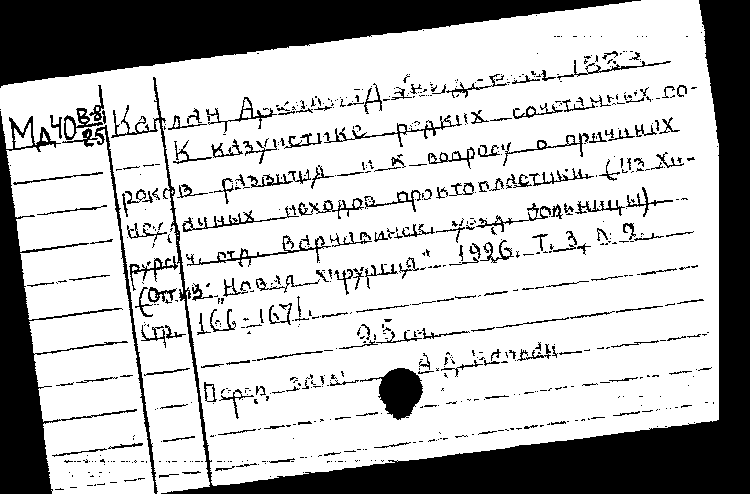 Мд40 В-8/25
Каплан, Аркадий Давидович, 1883
К казуистике редких сочетанных по-
роков развития и к вопросу о причинах
неудачных исходов проктопластики. (Из хи-
рургич. отд. Варнавинск. уезд. больницы).
(Отт. из: "Новая хирургия" 1926. Т. 3, № 2.
Стр. 166-167).
25 см.
Перед загл: А.Д. Каплан